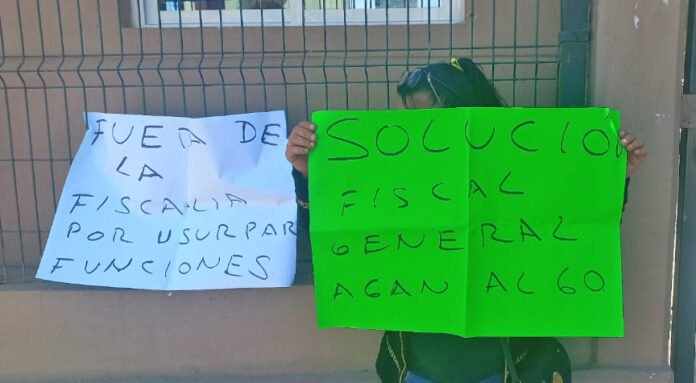 FUERA DE
LA
FISCALIA
POR USURPAR
FUNCIONES
SOLUCIÓN
FISCAL
GENERAL
AGAN AL GO